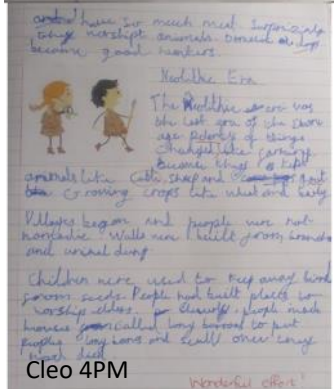 have so much meat. Surprisingly
they worshipt animals. Domesticated dogs
became good hunters.
Neolithic Era
The Neolithic era was
the last era of the Stone
age plenty of things
changed like farming.
they kept
animals like Cattle, Sheep and goat
Growing crops like wheat and barly
Villages began and people were not
nomadic. Walls were built from
and animal dung
Children were used to keep away birds
from seeds. People had built places to
worship elders. people made
houses called long barrows to put
peoples bones and scull once they
had died.
Cleo 4PM
Wonderful effort!